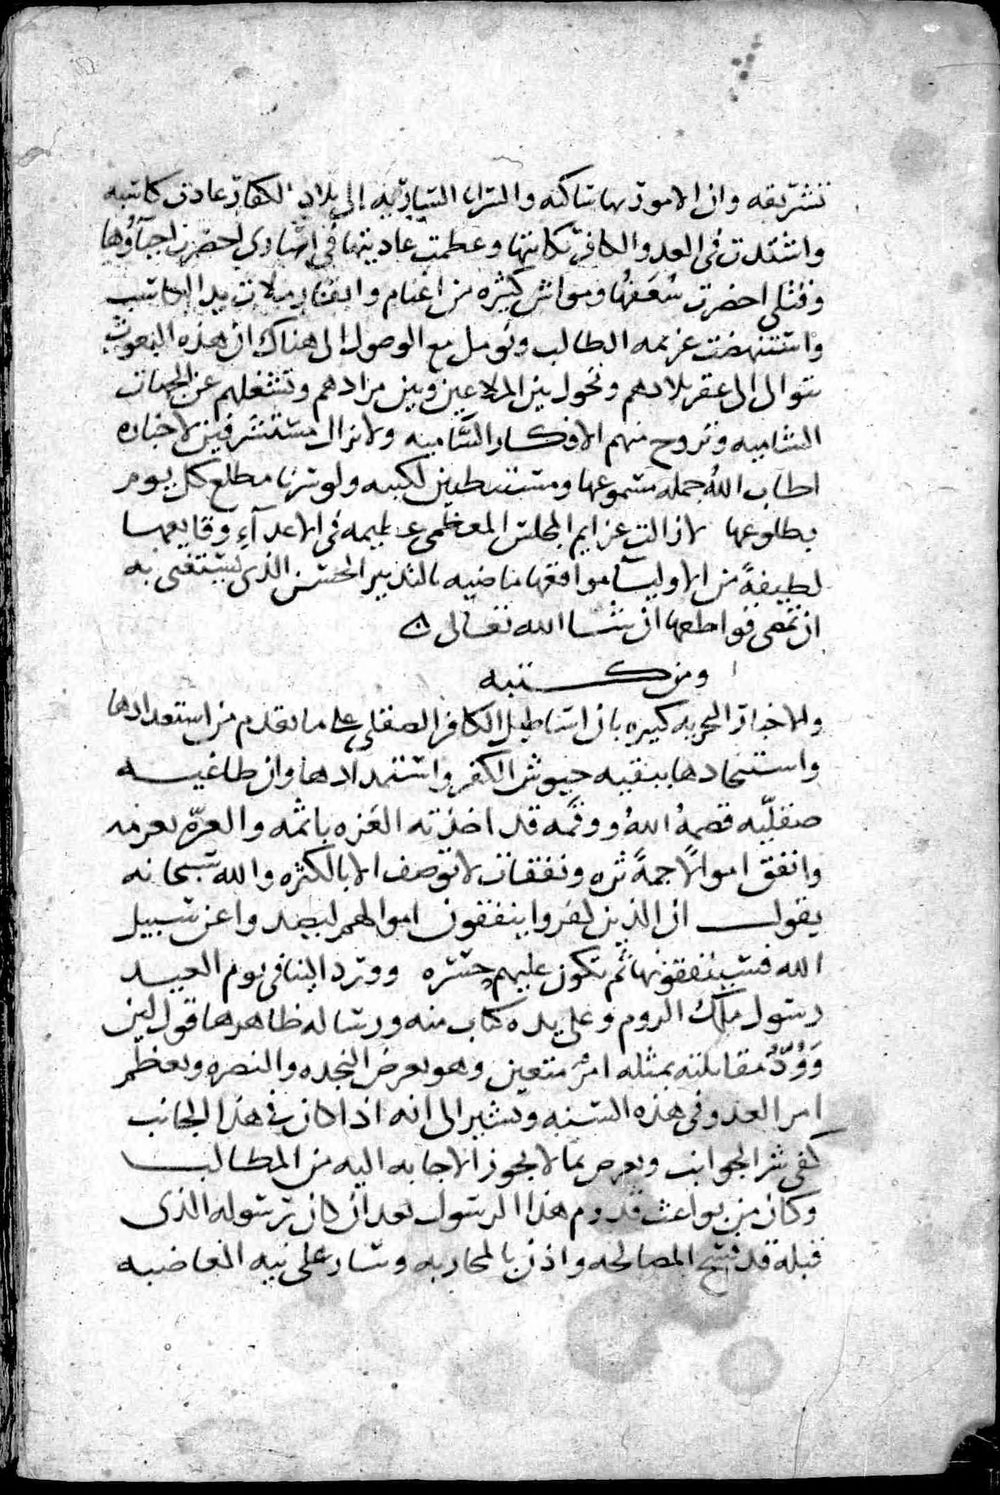 تشريفه وان الامور بها ساكنه والسرايا الساريه الى بلاد الكفار عادت كاسبه
واشتدت فى العدو الكافر نكايتها وعظمت عاديتها فى اسارى احضرت احياؤها
وقتلى احضرت شعفها ومواش كثيره من اغنام وابقار ملات يد الكاسب
واستنهضت عزيمه الطالب ونومل مع الوصول الى هناك ان هذه البعوث
تتوالى الى عقر بلادهم وتحول بين الملاعين وبين مرادهم وتشغلهم عن الجهات
الشاميه وتروح منهم الافكار الساميه ولا نزال مستشرفين لاخباره
اطاب الله جمله مسموعها ومستبطين لكتبه ولو سرنا مطلع كل يوم
بطلوعها لا زالت عزايم المجلس المعظمى عظيمه فى الاعداء وقايعها
لطيفةً من الاولياء مواقعها ماضيه بالتدبير الحسن الذى يستغنى به
ان تمضى قواطعها ان شا الله تعالى ه
ومن كتبه
والاخبار البحريه كبيره بان اساطيل الكافر الصقلى على ما تقدم من استعدادها
واستنجادها ببقيه جيوش الكفر واستمدادها وان طاغيه
صقليّه قصمهُ اللهُ ووقمه قد اخذته العزه باثمه والغرّه بعزمه
وانفق اموالًا جمةً ثره ونفقات لا توصف الا بالكثره والله سبحانه
يقول ان الذين كفروا ينفقون اموالهم ليصدوا عن سبيل
الله فسينفقونها ثم تكون عليهم حسره وورد الينا فى يوم العيد
رسول ملك الروم وعلى يده كتاب منه ورساله ظاهرها قول لين
وَوُدّ مقابلته بمثله امرٌ متعين وهو يعرض النجده والنصره ويعظم
امر العدو فى هذه السنه ويشير الى انه اذا كان فى هذا الجانب
كفى شر الجوانب ويعرض بما لا يجوز الاجابه اليه من المطالب
وكان من بواعث قدوم هذا الرسول بعد ان كان رسوله الذى
قبله قد فسخ المصالحه واذن بالمحاربه وسار على نيه المغاضبه